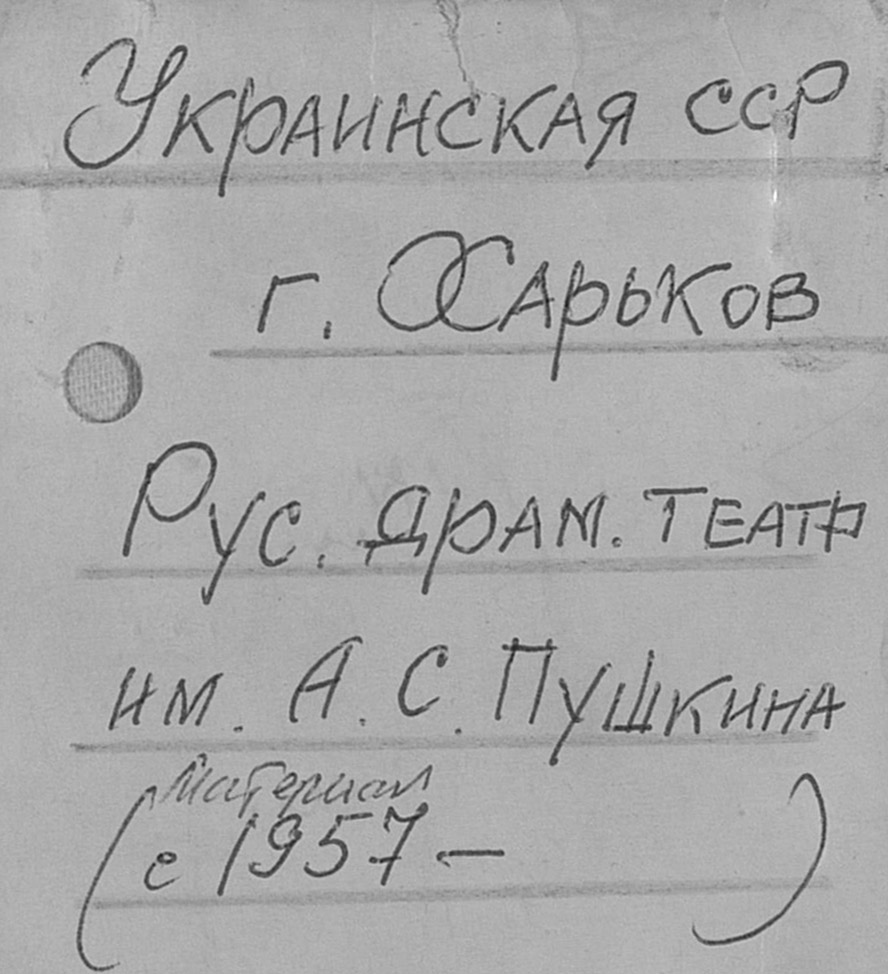 Украинская ССР
г. Харьков
Рус. драм. театр
им. А. С. Пушкина
(материал
с 1957 — )